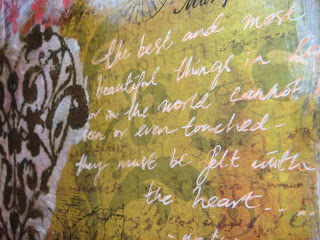 the best and most
beautiful things in
or in the world cannot
een or even touched-
they must be felt with
the heart....